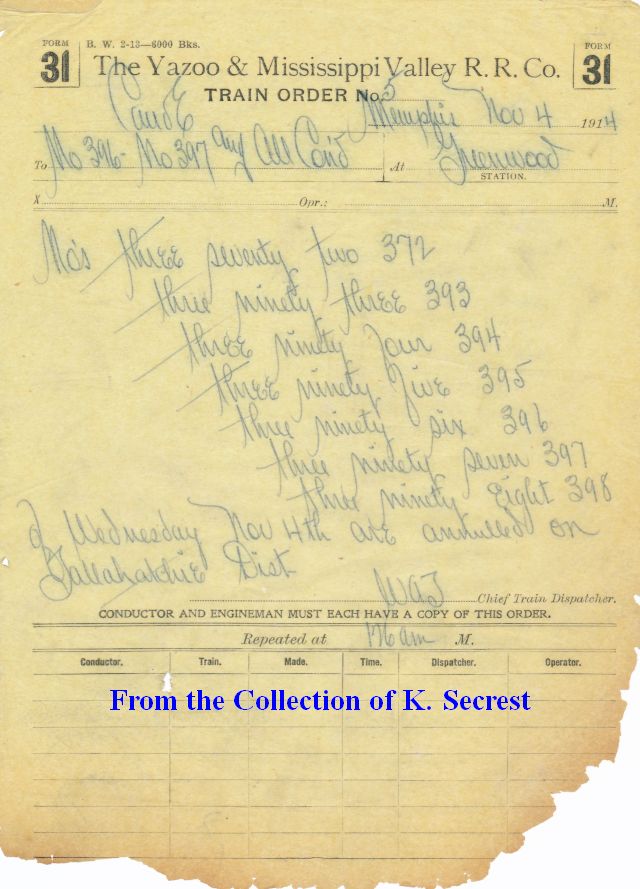 FORM 31 B. W. 2-13—6000 Bks. FORM 31
The Yazoo & Mississippi Valley R. R. Co.
TRAIN ORDER No. 5
C and E Memphis Nov 4 1914
To No 396 - No 397 any All Cond At Greenwood
STATION.
X Opr.: M.
No's three seventy two 372
three ninety three 393
three ninety four 394
three ninety five 395
three ninety six 396
three ninety seven 397
three ninety Eight 398
of Wednesday Nov 4th are annulled on
Tallahatchie Dist
Chief Train Dispatcher.
CONDUCTOR AND ENGINEMAN MUST EACH HAVE A COPY OF THIS ORDER.
Repeated at 176 am M.
Conductor. Train. Made. Time. Dispatcher. Operator.
From the Collection of K. Secrest